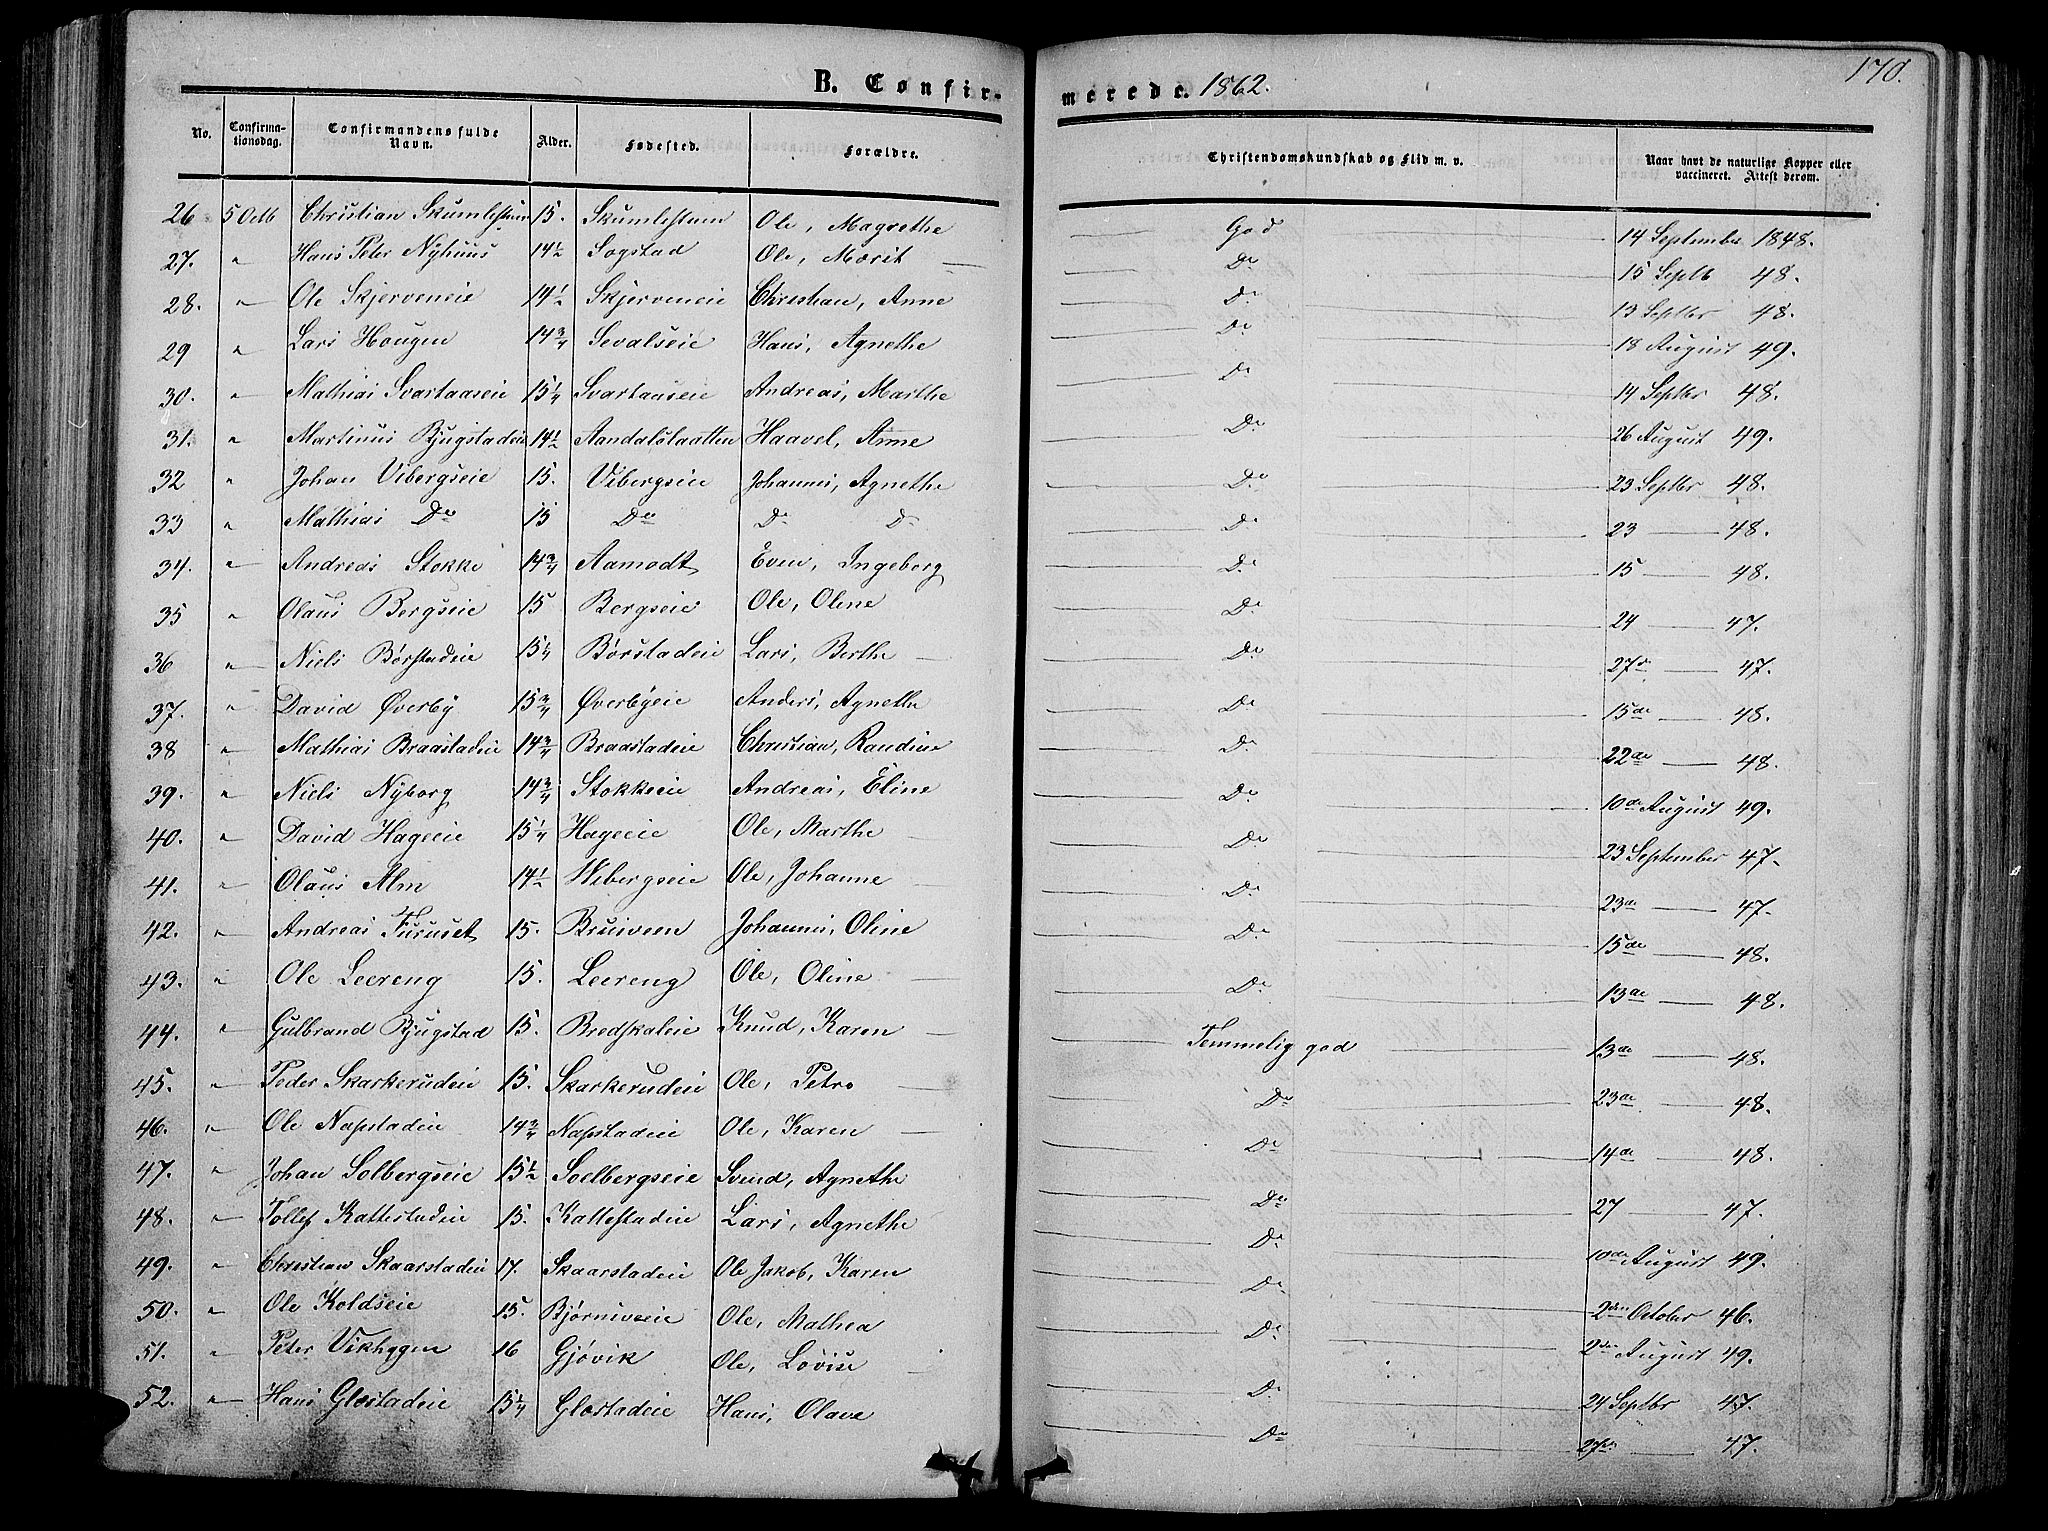 170.
B. Confirmerede. 1862.
No. Confirmationsdag. Confirmandens fulde Navn. Alder. Fødested. Forældre. Christendomskundskab og Flid m. v. Naar havt de naturlige Kopper eller vaccineret. Attest derom.
26 5 Octb Christian Skumlestuen 15. Skumlestuen Ole, Magrethe God 14 September 1848.
27. " Hans Peter Nyhuus 14½ Sogstad Ole, Marit Do 15 Septb 48.
28. " Ole Skjerveneie 14½ Skjerveneie Christian, Anne Do 13 Septbr 48.
29 " Lars Hougen 14¾ Sevalseie Hans, Agnethe Do 18 August 49.
30. " Mathias Svartaaseie 15¼ Svartaaseie Andreas, Marthe Do 14 Septbr 48.
31. " Martinus Bjugstadeie 14½ Aandalslaatten Haavel, Anne Do 26 August 49.
32 " Johan Vibergseie 15. Vibergseie Johannes, Agnethe Do 23 Septbr 48.
33 " Mathias Do 15 Do Do Do Do 23 — 48.
34. " Andreas Stokke 14¾ Aamodt Even, Ingeborg Do 15 — 48.
35 " Olaus Bergseie 15 Bergseie Ole, Oline Do 24 — 47.
36 " Niels Børstadeie 15¼ Børstadeie Lars, Berthe Do 27de — 47.
37. " David Øverby 15¾ Øverbyeie Anders, Agnethe Do 15de — 48.
38 " Mathias Braastadeie 14¾ Braastadeie Christian, Randine Do 22de — 48.
39. " Niels Nyborg 14¾ Stokkeeie Andreas, Eline Do 10de August 49.
40. " David Hageeie 15¼ Hageeie Ole, Marthe Do 23 September 47.
41. " Olaus Alm 14½ Wibergseie Ole, Johanne Do 23de — 47.
42. " Andreas Furuset 15. Bruiveen Johannes, Oline Do 15de — 48.
43. " Ole Leereng 15. Leereng Ole, Oline Do 13de — 48.
44. " Gulbrand Bjugstad 15. Bredskaleie Knud, Karen Temmelig god 13de — 48.
45. " Peder Skarkerudeie 15. Skarkerudeie Ole, Petro Do 23de — 48.
46. " Ole Napstadeie 14¾ Napstadeie Ole, Karen Do 14de — 48.
47. " Johan Solbergseie 15½ Soelbergseie Svend, Agnethe Do 27 — 47.
48. " Tollef Kattestadeie 15. Kattestadeie Lars, Agnethe Do 10de August 49.
49. " Christian Skaarstadeie 17. Skaarstadeie Ole Jakob, Karen Do 2den October 46.
50. " Ole Koldseie 15. Bjørnsveeie Ole, Mathea Do 2den August 49.
51. " Peter Vikhygen 16 Gjøvik Ole, Lovise Do 24 Septbr 47.
52. " Hans Glæstadeie 15¼ Glæstadeie Hans, Olave Do 27de — 47.